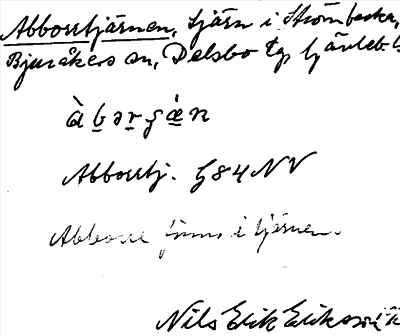 Abborrtjärnen, tjärn i Strömbacka,
Bjuråkers sn, Delsbo tg, Gävleb. l.
Abborrtj. G84 NV
Abborre finns i tjärnen.
Nils Erik Eriksson i